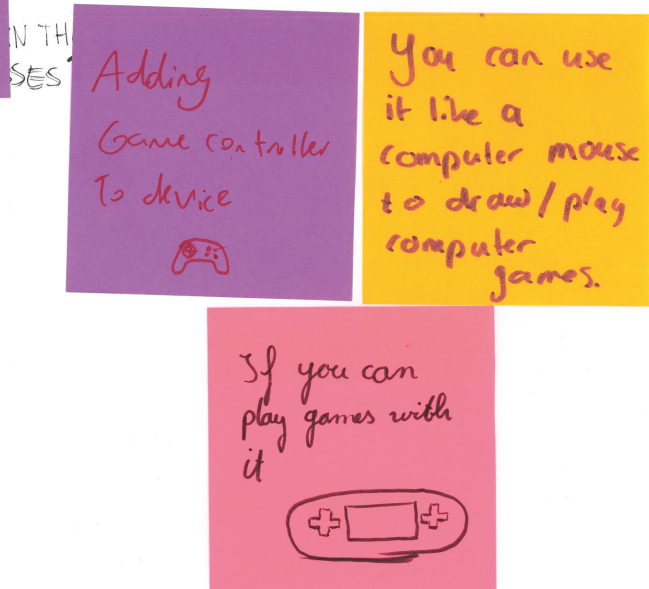 Adding
Game controller
To device
You can use
it like a
computer mouse
to draw/play
computer
games.
If you can
play games with
it